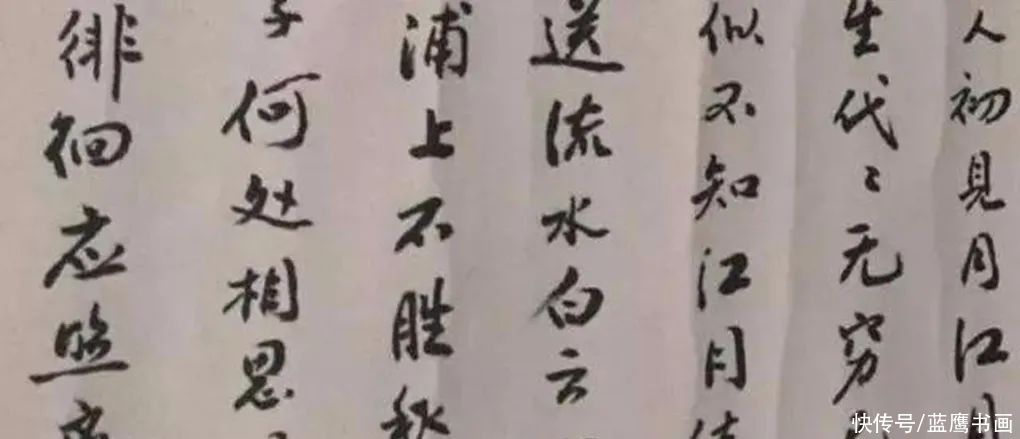 人初見月江月
生代〻无穷
似不知江月
送流水白云
浦上不胜
何处相思
徘徊应照
快传号/蓝鹰书画